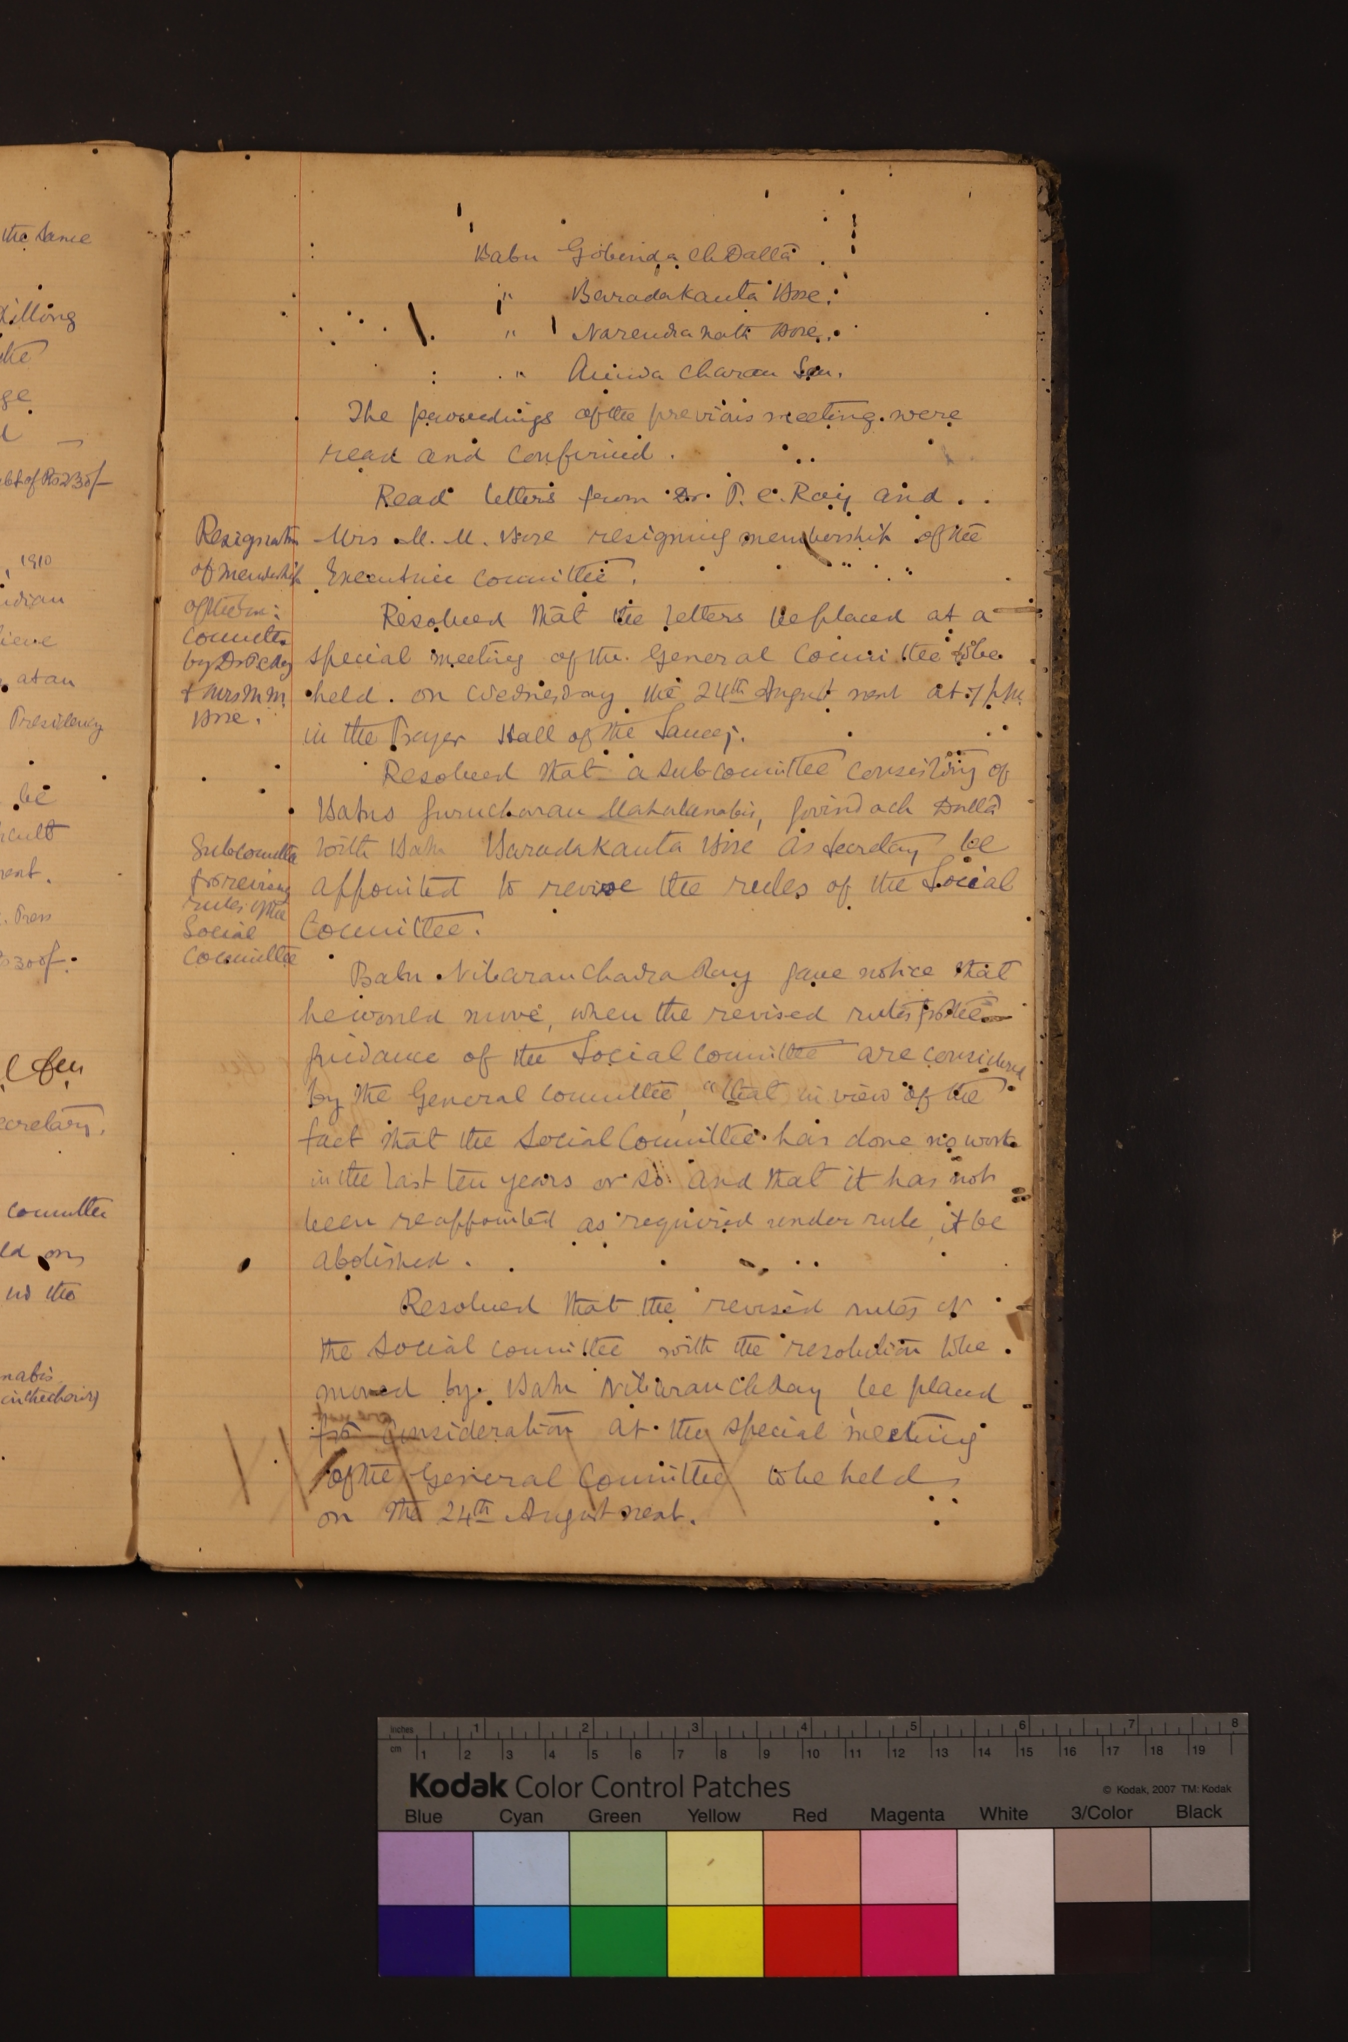 the same
Killong
the
ge
d
of Rs 230/-
, 1910
ndian
lieve
at an
Presidency
be
cult
ent.
. Press
300/-
Secretary.
Committee
ld on
us the
nabis
Babu Gobinda Ch Datta
" Baradakanta Bose.
" Narendra nath Bose.
" Annada Charan Sen.
The proceedings of the previous meeting were
read and confirmed.
Read letters from Dr. P. C. Ray and
Resignation
of membership
of the Ex:
Committee
by Dr P C Ray
& Mrs M. M.
Bose.
Mrs M. M. Bose resigning membership of the
Executive Committee.
Resolved that the letters be placed at a
special meeting of the General Committee to be
held on Wednesday the 24th August next at 7 p.m.
in the Prayer Hall of the Samaj.
Resolved that a subcommittee consisting of
Babus Gurucharan Mahalanabis, Govinda ch Datta
with Babu Baradakanta Bose as Secretary be
appointed to revise the rules of the Social
Committee.
Subcommittee
for revising
rules of the
Social
Committee
Babu Nibaran Chadra Ray gave notice that
he would move, when the revised rules for the
guidance of the Social Committee are considered
by the General Committee, "that in view of the
fact that the Social Committee has done no work
in the last ten years or so and that it has not
been reappointed as required under rule, it be
abolished.
Resolved that the revised rules of
the Social committee with the resolution to be
moved by Babu Nibaran Ch Ray be placed
for consideration at the special meeting
of the General Committee to be held
on the 24th August next.
Inches 1 2 3 4 5 6 7 8
cm 1 2 3 4 5 6 7 8 9 10 11 12 13 14 15 16 17 18 19
Kodak Color Control Patches
© Kodak, 2007 TM: Kodak
Blue Cyan Green Yellow Red Magenta White 3/Color Black